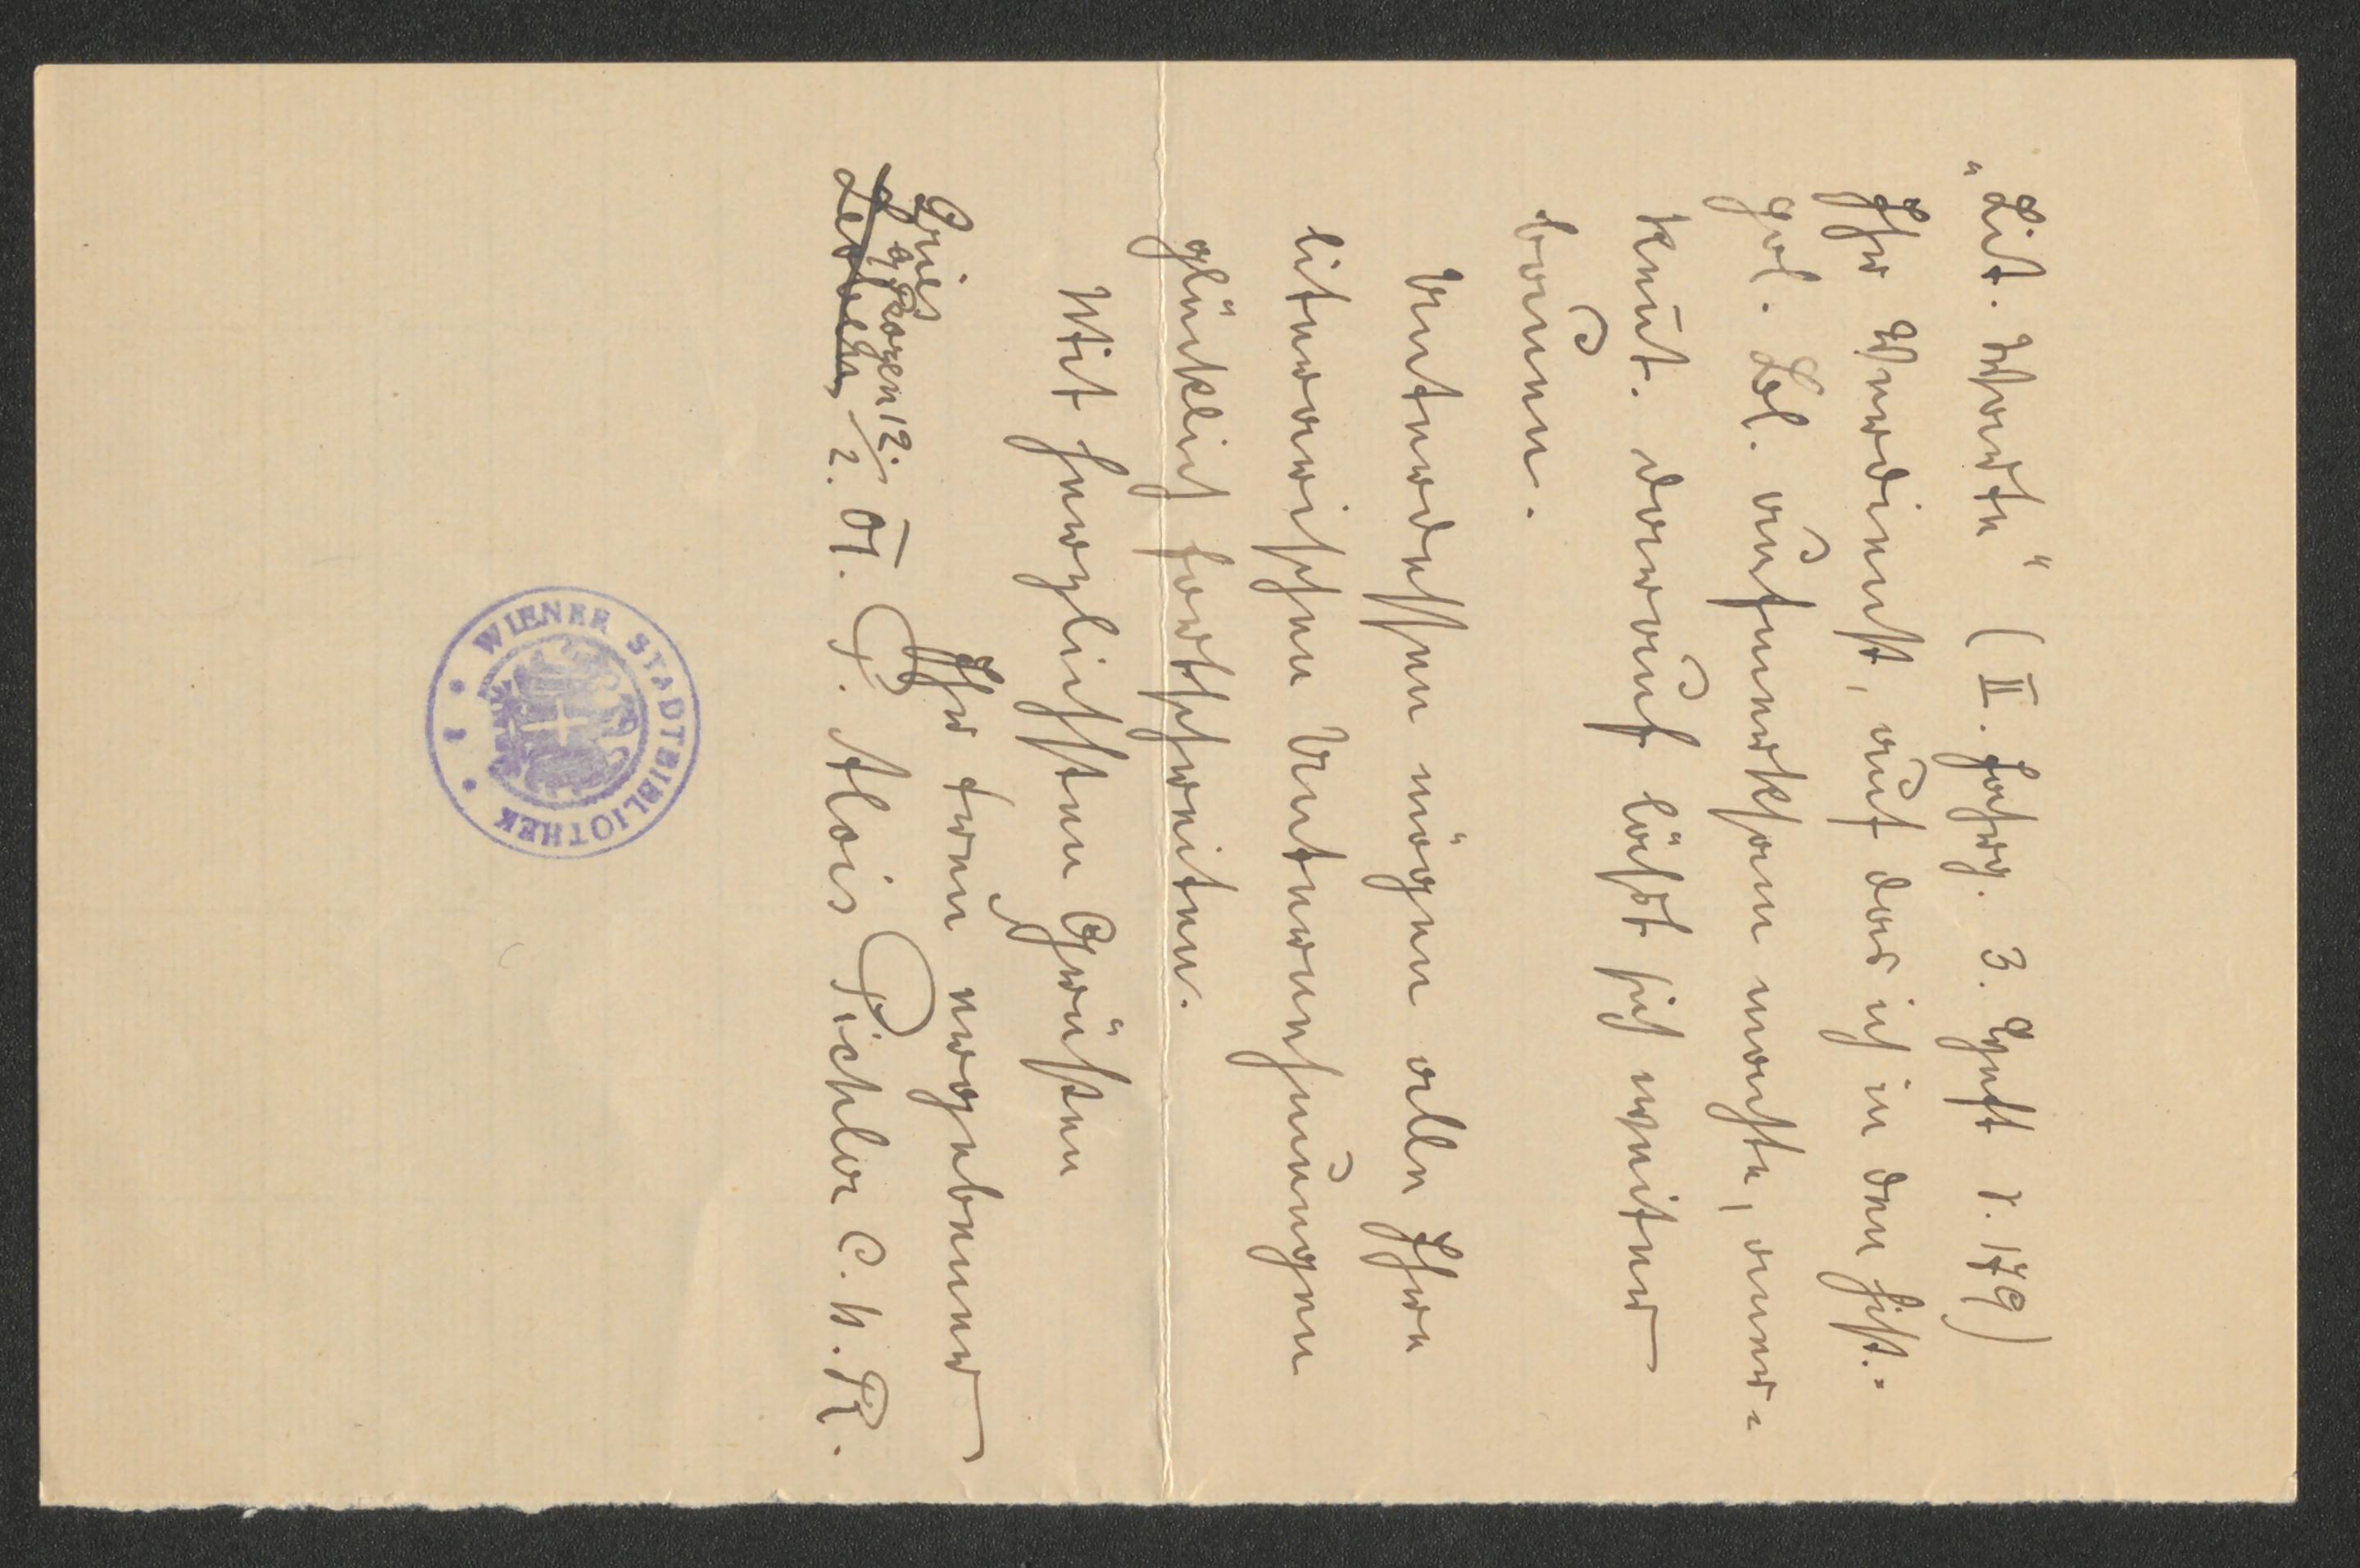 „Lit. Warte“ (II. Jahrg. 3. Heft S. 179)
Ihr Verdienst, auf das ich in den hist.-
pol. Bl. aufmerksam machte, aner-
kennt. darauf läßt sich weiter
bauen.
Unterdessen mögen alle Ihre
literarischen Unternehmungen
glücklich fortschreiten.
Mit herzlichsten Grüßen
Ihr treu ergebener
Gries
b. Bozen 12./2. 01. P. Alois Pichler C. ss. R.
WIENER STADTBIBLIOTHEK